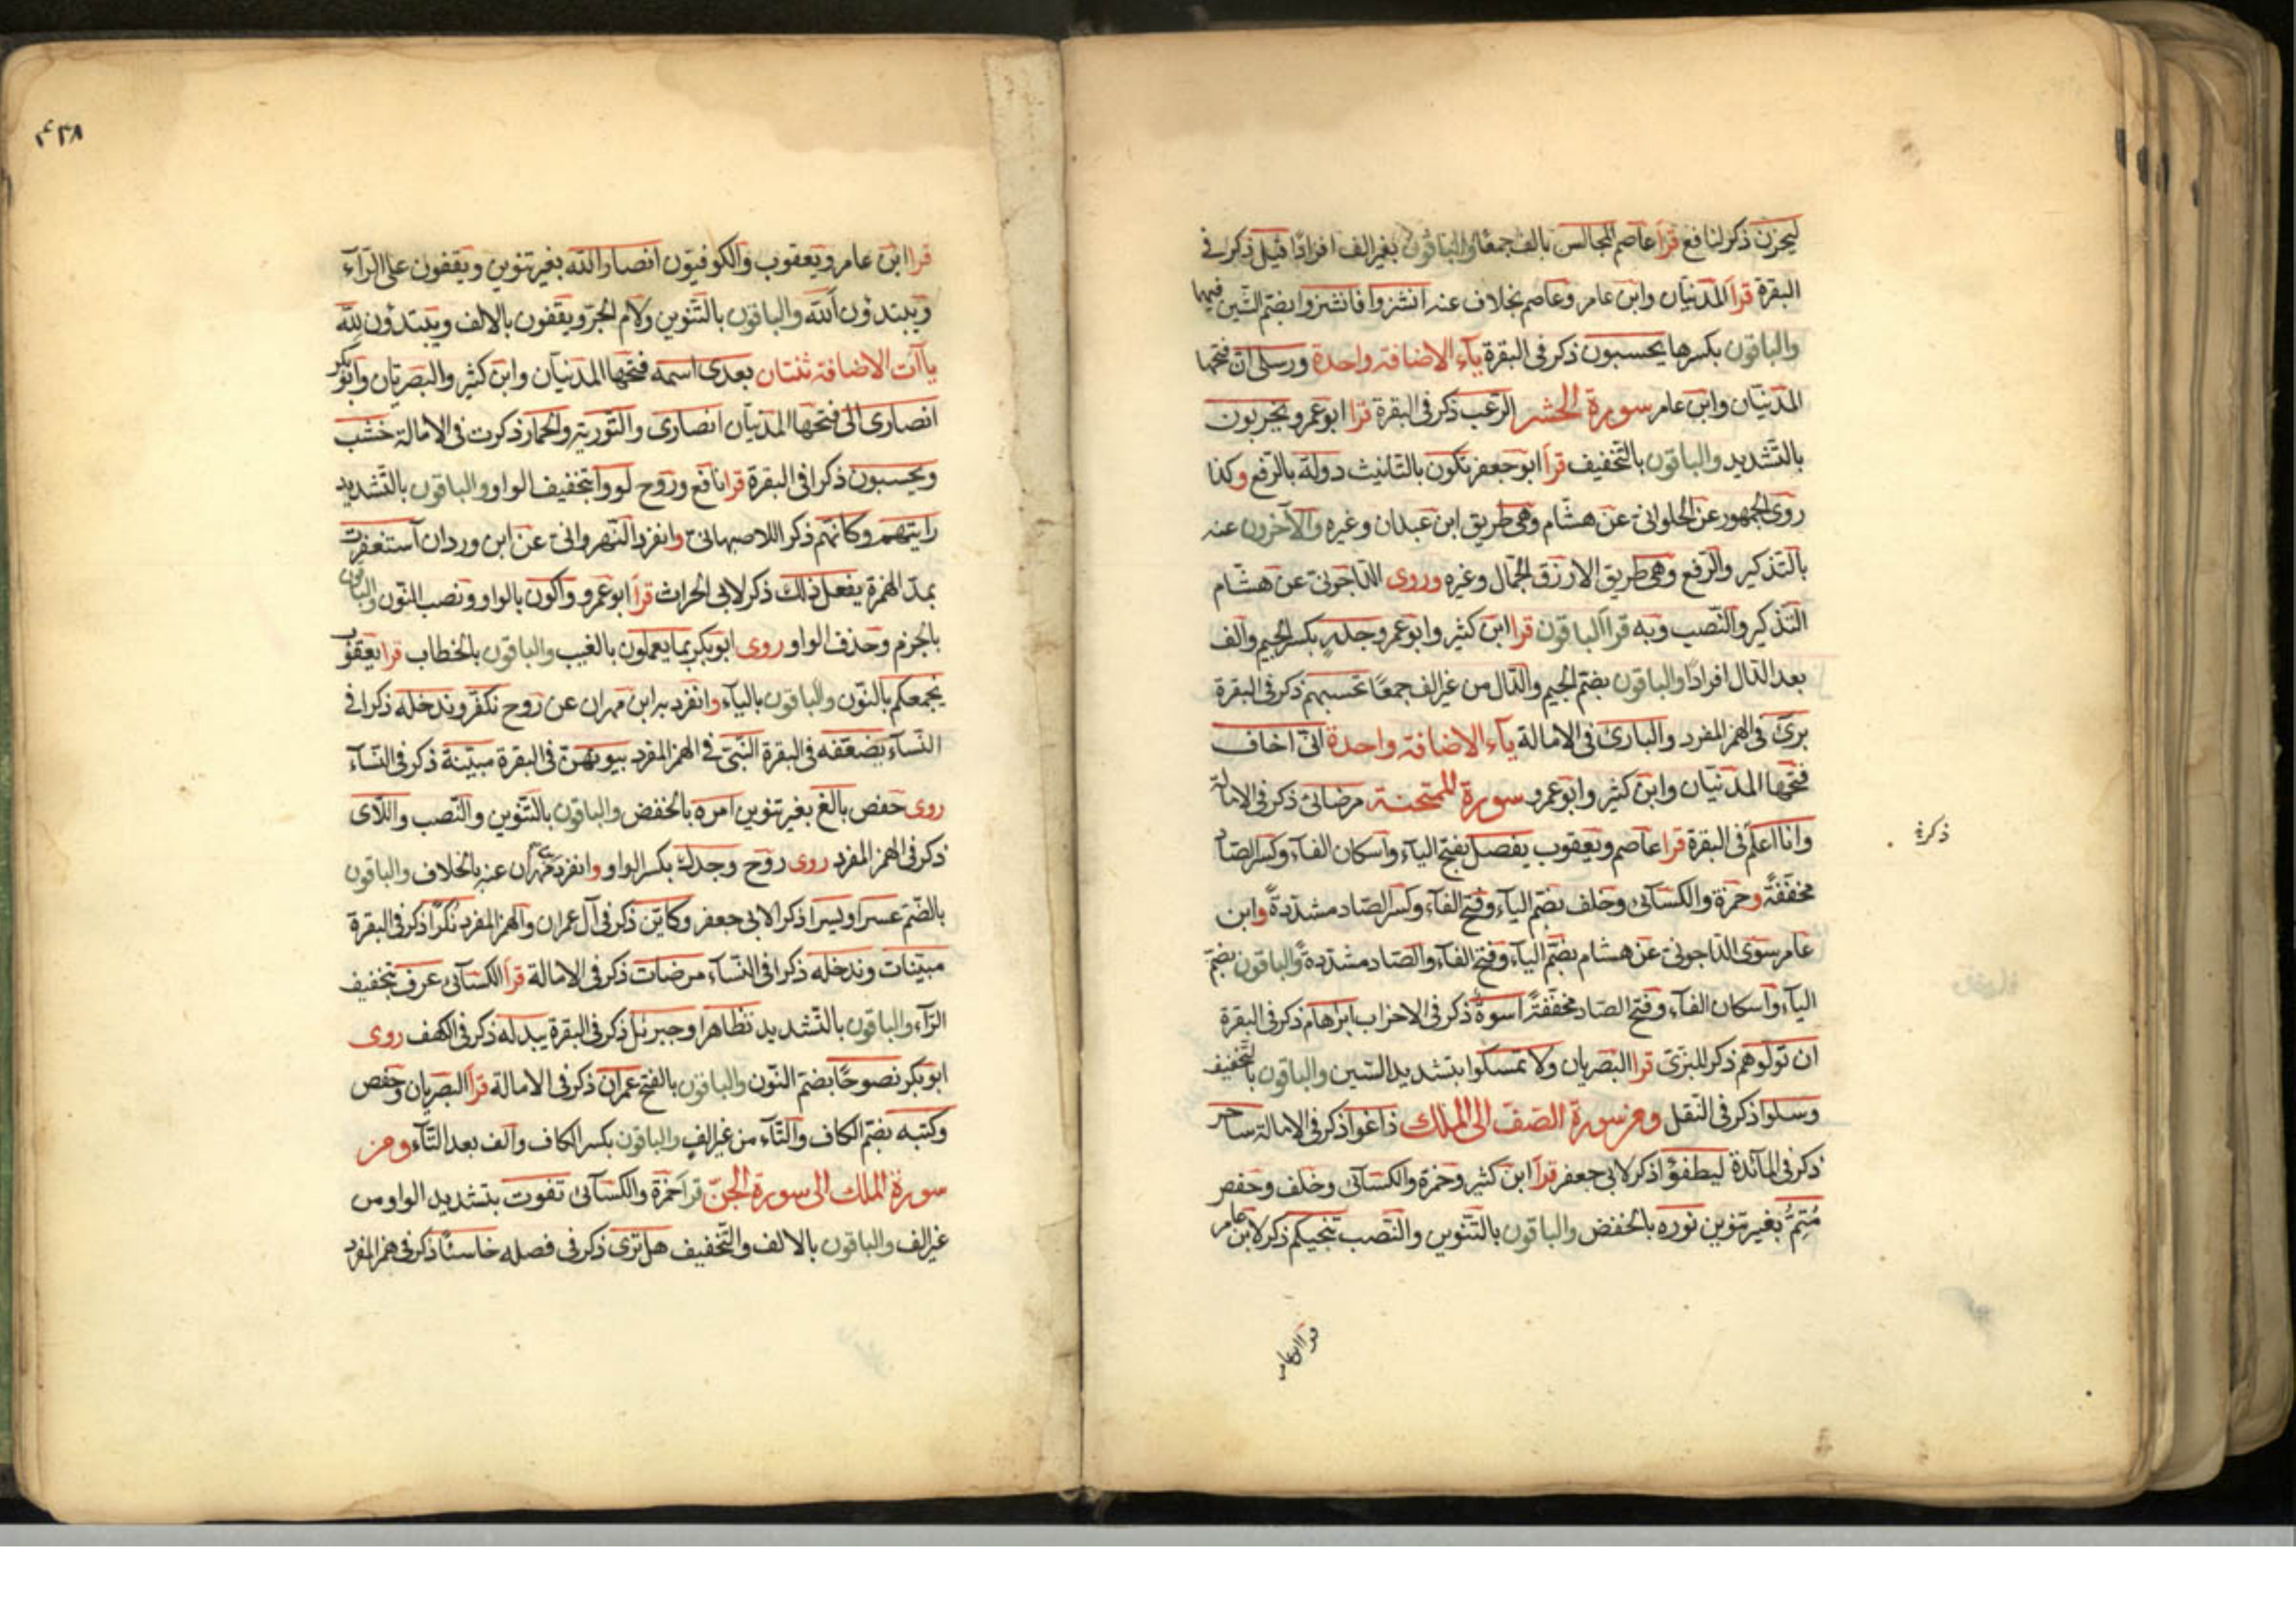 ليحزن ذكر لنافع قرا عاصم المجالس بالف جمعا والباقون بغير الف افرادا قيل ذكر في
البقرة قرا المدنيان وابن عامر وعاصم بخلاف عنه انشزوا فانشزوا بضم الشين فيهما
والباقون بكسرها يحسبون ذكر في البقرة ياء الاضافة واحدة ورسلى ان فتحها
المدنيان وابن عامر سورة الحشر الرعب ذكر في البقرة قرا ابو عمرو يخربون
بالتشديد والباقون بالتخفيف قرا ابو جعفر تكون بالتانيث دولة بالرفع وكذا
روى الجمهور عن الحلوانى عن هشام وهي طريق ابن عبدان وغيره والآخرون عنه
بالتذكير والرفع وهي طريق الازرق الجمال وغيره وروى الداجونى عن هشام
التذكير والنصب وبه قرا الباقون قرا ابن كثير وابو عمرو جدار بكسر الجيم والف
بعد الدال افرادا والباقون بضم الجيم والدال من غير الف جمعا تحسبهم ذكر في البقرة
برئ في الهمز المفرد والبارئ في الامالة ياء الاضافة واحدة انى اخاف
فتحها المدنيان وابن كثير وابو عمرو سورة الممتحنة مرضاتى ذكر في الامالة
وانا اعلم في البقرة قرا عاصم ويعقوب يفصل بفتح الياء واسكان الفاء وكسر الصاد
مخففة وحمزة والكسائى وخلف بضم الياء وفتح الفاء وكسر الصاد مشددة وابن
عامر سوى الداجونى عن هشام بضم الياء وفتح الفاء والصاد مشددة والباقون بضم
الياء واسكان الفاء وفتح الصاد مخففة اسوة ذكر في الاحزاب ابراهام ذكر في البقرة
ان تولوهم ذكر للبزى قرا البصريان ولا تمسكوا بتشديد السين والباقون بالتخفيف
وسلوا ذكر في النقل ومن سورة الصف الى الملك زاغوا ذكر في الامالة ساحر
ذكر في المائدة ليطفؤا ذكر لابى جعفر قرا ابن كثير وحمزة والكسائى وخلف وحفص
مُتِمُّ بغير تنوين نوره بالخفض والباقون بالتنوين والنصب تنجيكم ذكر لابن عامر
قرا ابن عامر
ذكر في
٤٣٨
قرا ابن عامر ويعقوب والكوفيون انصار الله بغير تنوين ويقفون على الراء
ويبتدؤن الله والباقون بالتنوين ولام الجر ويقفون بالالف ويبتدؤن لله
ياآت الاضافة ثنتان بعدى اسمه فتحها المدنيان وابن كثير والبصريان وابو بكر
انصارى الى فتحها المدنيان انصارى والتورية والحمار ذكرت في الامالة خشب
ويحسبون ذكرا في البقرة قرا نافع وروح لووا بتخفيف الواو والباقون بالتشديد
رايتهم وكانهم ذكر للاصبهانى وانفرد النهروانى عن ابن وردان آستغفرت
بمد الهمزة يفعل ذلك ذكر لابى الحراث قرا ابو عمرو واكون بالواو ونصب النون والباقون
بالجزم وحذف الواو روى ابو بكر بما يعملون بالغيب والباقون بالخطاب قرا يعقوب
يجمعكم بالنون والباقون بالياء وانفرد به ابن مهران عن روح نكفر وندخله ذكرا في
النساء يضعفه في البقرة النبئ في الهمز المفرد بيوتهن في البقرة مبينة ذكر في النساء
روى حفص بالغ بغير تنوين امره بالخفض والباقون بالتنوين والنصب واللاى
ذكر في الهمز المفرد روى روح وجدك بكسر الواو وانفرد مهران عنه بالخلاف والباقون
بالضم عسرا ويسرا ذكر الابى جعفر وكاين ذكر في آل عمران والهمز المفرد نكرا ذكر في البقرة
مبينات وندخله ذكرا في النساء مرضات ذكر في الامالة قرا الكسائى عرف بتخفيف
الراء والباقون بالتشديد تظاهرا وجبرئل ذكر في البقرة يبدله ذكر في الكهف روى
ابو بكر نصوحا بضم النون والباقون بالفتح عمران ذكر في الامالة قرا البصريان وحفص
وكتبه بضم الكاف والتاء من غير الف والباقون بكسر الكاف والف بعد التاء ومن
سورة الملك الى سورة الجن قرا حمزة والكسائى تفوت بتشديد الواو من
غير الف والباقون بالالف والتخفيف هل ترى ذكر في فصله خاسئا ذكر في همز المفرد